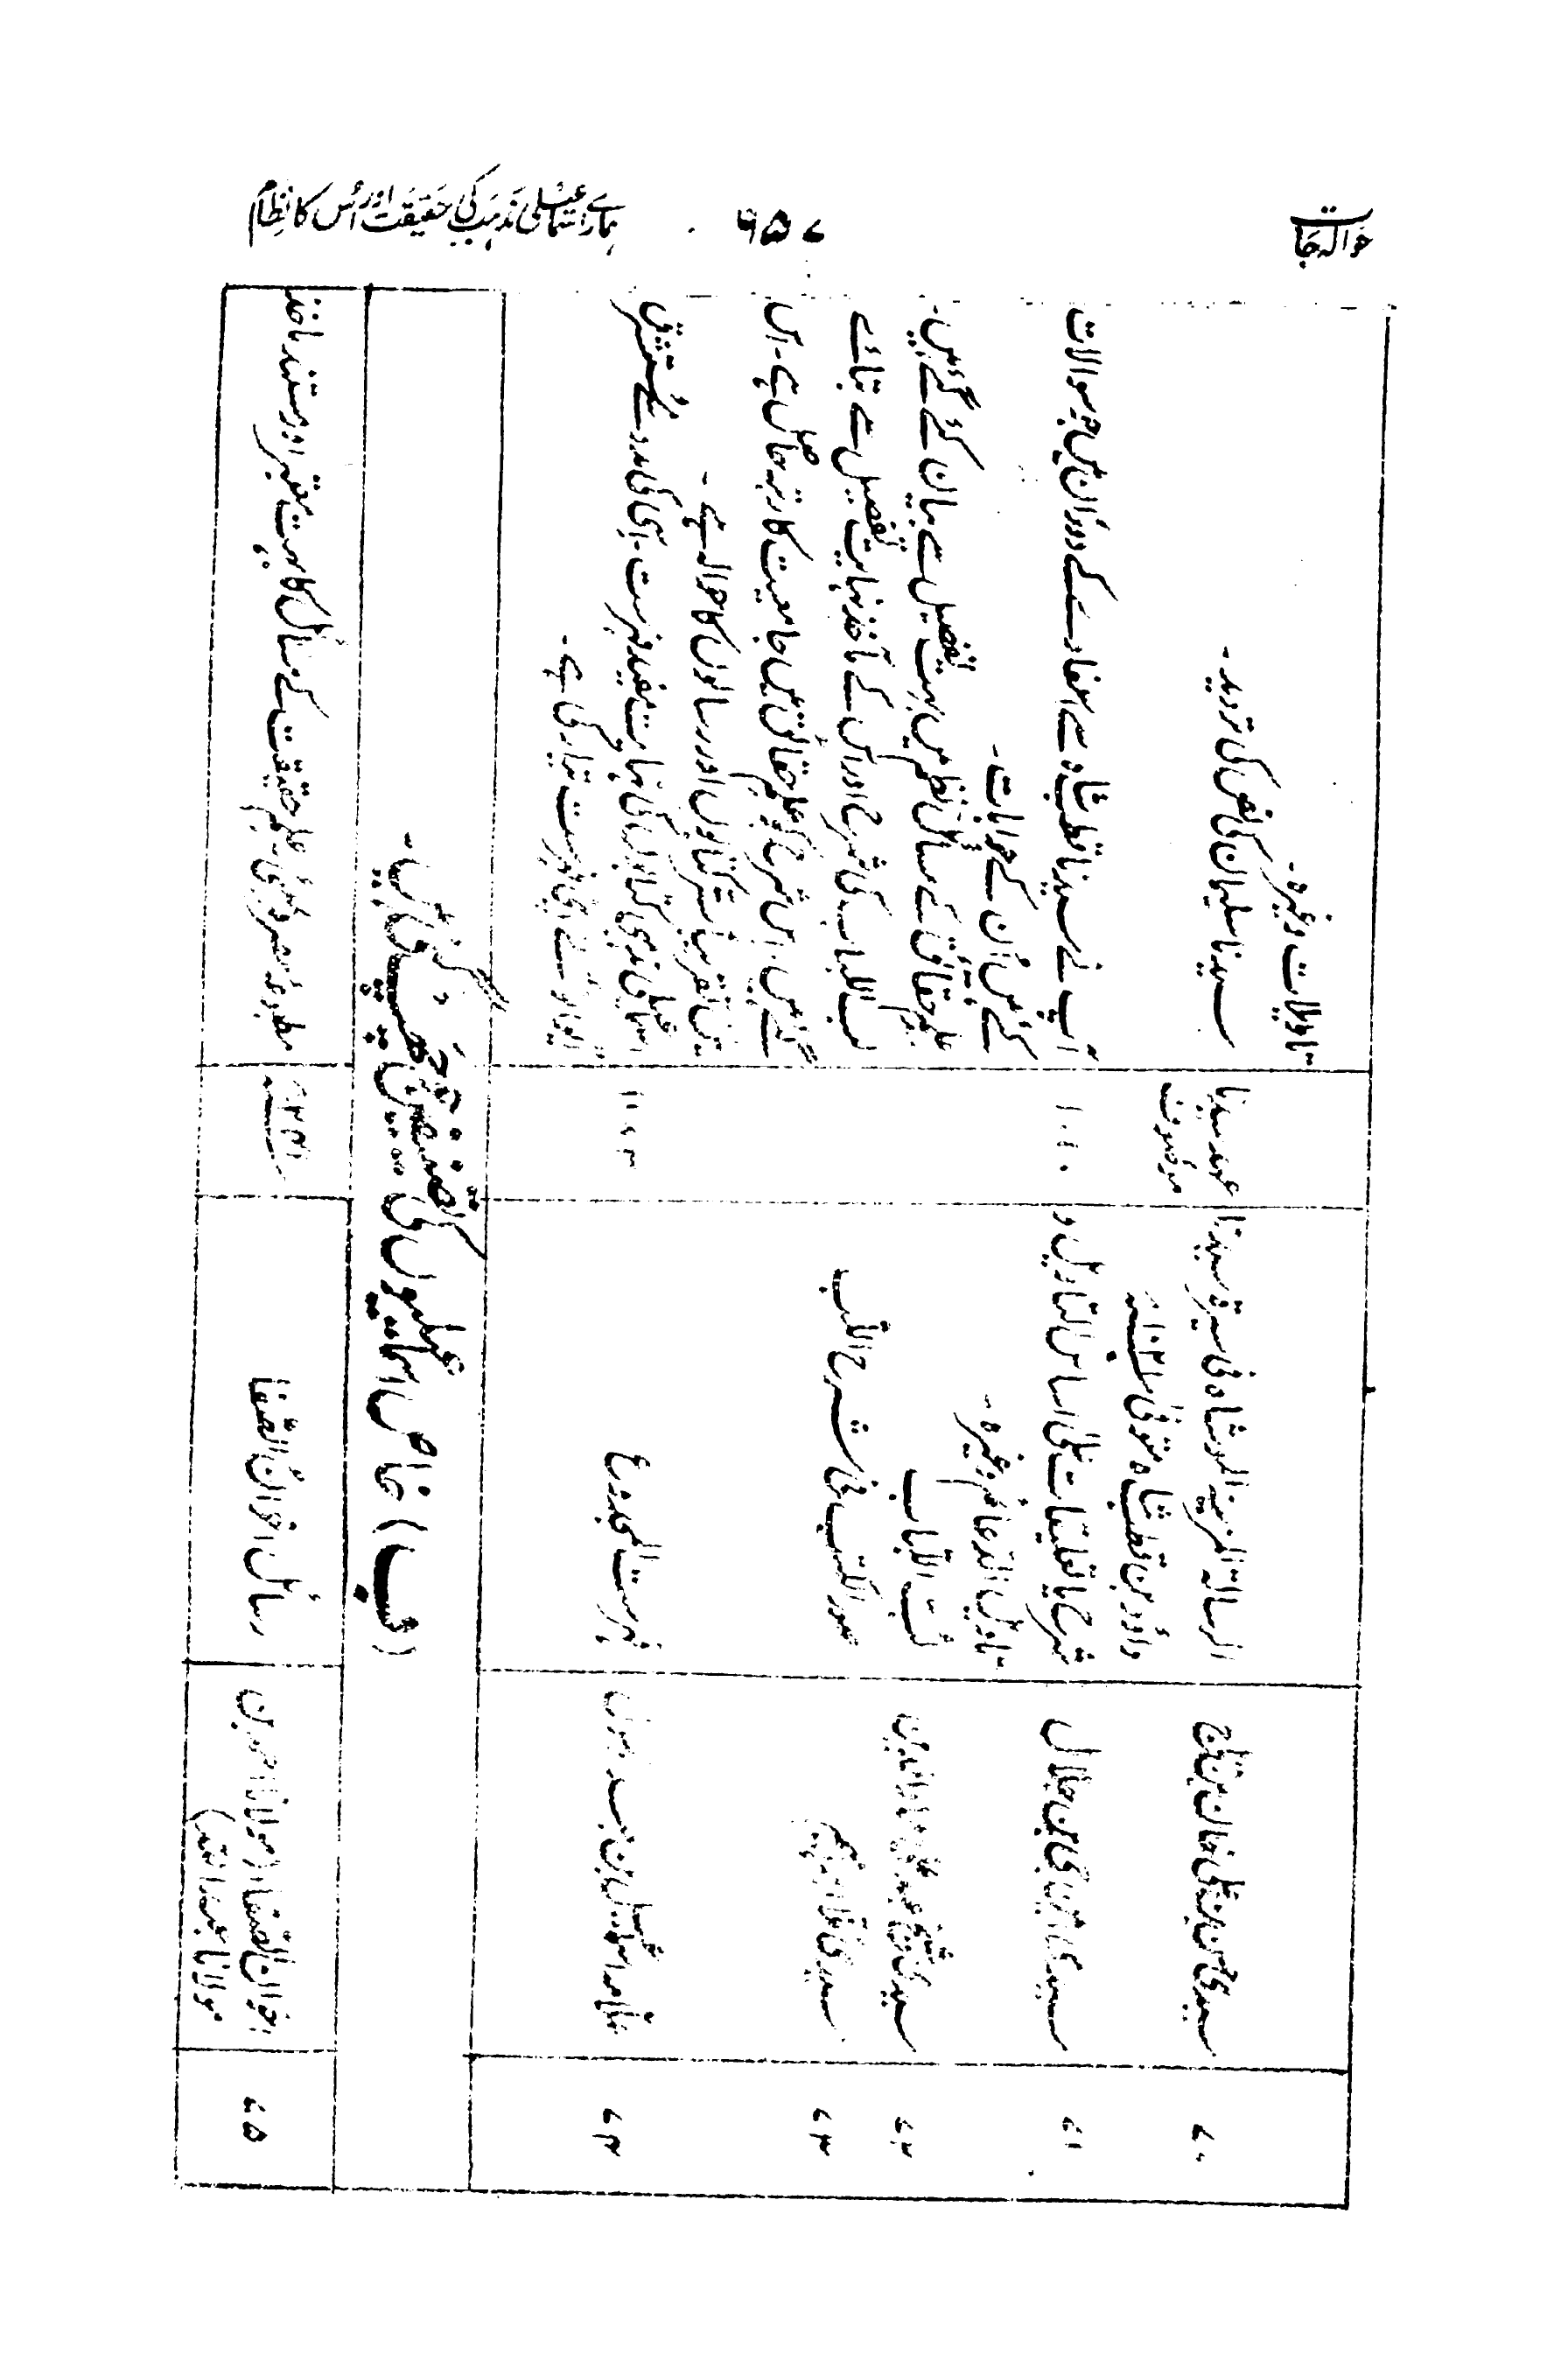 حوالہ جات
۶۵۷
ہمارے اسماعیلی مذہب کی حقیقت اور اُس کا نظام
تاویلات وغیرہ۔
۷۰
سیدی حسن بن علی خان بن تاج
الرسالۃ المزینۃ المرشاہ فی سیرۃ سیدنا
داؤد بن قطب شاہ متوفی ۱۰۲۱ھ
عہد سیدنا
موصوف
سیدنا سلیمان کی نص کی تردید۔
۷۱
سیدی امین جی بن جلال
شرح یا تعلیقات علی اساس التاویل و
تاویل الدعائم وغیرہ۔
۱۰۱۰
آپ نے سیدنا قطب شاہ سے استفادے کے دوران میں جو سوالات
کئے ہیں اُن کے جوابات۔
۷۲
لب اللباب
علم حقائق کے مسائل نظم میں بہت تفصیل سے بیان کئے گئے ہیں۔
۷۳
سیدی
عبور الکتب فی شرح اللب
لب اللباب کی شرح اور اس کے مآخذ نہایت تفصیل سے بتائے
گئے ہیں۔ اس شرح کو علم حقائق میں جامعیت کا رتبہ حاصل ہے۔ اس
میں تقریباً ستر کتابوں اور رسالوں کا حوالہ ہے۔
۷۴
اسماعیل بن عبد رسول
فہرست المجدوع
اسماعیلی مذہبی کتابوں کی نہایت مفید فہرست۔ اسی کی مدد سے مستشرق
ایوانو نے اپنی فہرست تیار کی ہے۔
(ب) خاص اسماعیلیوں کی تصنیفیں جو چھپ گئی ہیں۔
۷۵
اخوان الصفا (مولانا احمد بن
مولانا عبد اللہ)
رسائل اخوان الصفا
مطبوعہ مصر و بمبئی۔ علم حقیقت کے مسائل کا بہت معتبر اور مستند ماخذ